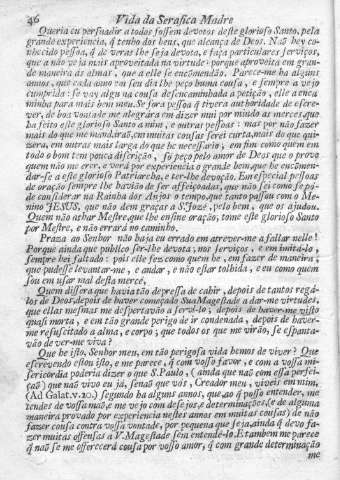 46 Vida da Serafica Madre
Queria eu persuadir a todos fossem devotos deste glorioso Santo, pela
grande experiencia, q̃ tenho dos bens, que alcança de Deos. Naõ hey co-
nhecido pessoa, q̃ de veras lhe seja devota, e faça particulares serviços,
que a naõ veja mais aproveitada na virtude: porque aproveita em gran-
de maneira ás almas, que a elle se encomendão. Parece-me ha alguns
annos, que cada anno em seu dia lhe peço huma cousa, e sempre a vejo
cumprida: se vay algũa cousa desencaminhada a petição, elle a enca-
minha para mais bem meu. Se fora pessoa q̃ tivera authoridade de escre-
ver, de boa vontade me alegrara em dizer mui por miudo as merces, que
ha feito este glorioso Santo a mim, e outras pessoas: mas por naõ fazer
mais do que me mandiraõ, em muitas cousas serei curta, mais do que qui-
zera, em outras mais larga do que he necessario, em fim como quem em
todo o bom tem pouca discrição, só peço pelo amor de Deos que o prove
quem não me crer, e verá por experiencia o grande bem, que he encomen-
dar-se a este glorioso Patriarcha, e ter-lhe devoção. Em especial pessoas
de oração sempre lhe havião de ser affeiçoadas, que não sei como se pó-
de considerar na Rainha dos Anjos o tempo, que tanto passou com o Me-
nino JESUS, que não dem graças a S. Joze, pelo bem, que os ajudou.
Quem não achar Mestre, que lhe ensine oração, tome este glorioso Santo
por Mestre, e não errará no caminho.
Praza ao Senhor não haja eu errado em atrever-me a fallar nelle!
Porque ainda que publico ser-lhe devota, nos serviços, e em imita-lo,
sempre hei faltado: pois elle fez como quem he, em fazer de maneira,
que pudesse levantar-me, e andar, e não estar tolhida, e eu como quem
sou em usar mal desta mercè.
Quem dissera que havia tão depressa de cahir, depois de tantos rega-
los de Deos, depois de haver começado Sua Magestade a dar-me virtudes,
que ellas mesmas me despertavão a servi-lo, depois de haver-me visto
quasi morta, e em tão grande perigo de ir condenada, depois de haver-
me resuscitado a alma, e corpo, que todos os que me virão, se espanta-
vão de ver-me viva?
Que he isto, Senhor meu, em tão perigosa vida hemos de viver? Que
escrevendo estou isto, e me parece, q̃ com vosso favor, e com a vossa mi-
sericordia poderia dizer o que S. Paulo, (ainda que não com essa perfei-
ção) que não vivo eu já, senaõ que vós, Creador meu, viveis em mim,
(Ad Galat. v. 20.) segundo ha alguns annos, que ao q̃ posso entender, me
tendes de vossa mão, e me vejo com desejos, e determinações, (e de alguma
maneira provado por experiencia nestes annos em muitas cousas) de não
fazer cousa contra vossa vontade, por pequena que seja, ainda q̃ devo fa-
zer muitas offensas a V. Magestade sem entendè-lo. E tambem me parece
q̃ não se me offerecerá cousa por vosso amor, q̃ com grande determinação
me